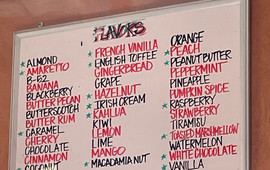 FLAVORS
* ALMOND
* AMARETTO
B-52
BANANA
BLACKBERRY
BUTTER PECAN
BUTTERSCOTCH
BUTTER RUM
* CARAMEL
CHERRY
CHOCOLATE
CINNAMON
COCONUT
* FRENCH VANILLA
* ENGLISH TOFFEE
GINGERBREAD
GRAPE
* HAZELNUT
* IRISH CREAM
* KAHLUA
KIWI
LEMON
LIME
MANGO
* MACADAMIA NUT
ORANGE
* PEACH
PEANUT BUTTER
PEPPERMINT
PINEAPPLE
PUMPKIN SPICE
* RASPBERRY
STRAWBERRY
TIRAMISU
* TOASTED MARSHMALLOW
WATERMELON
* WHITE CHOCOLATE
* VANILLA